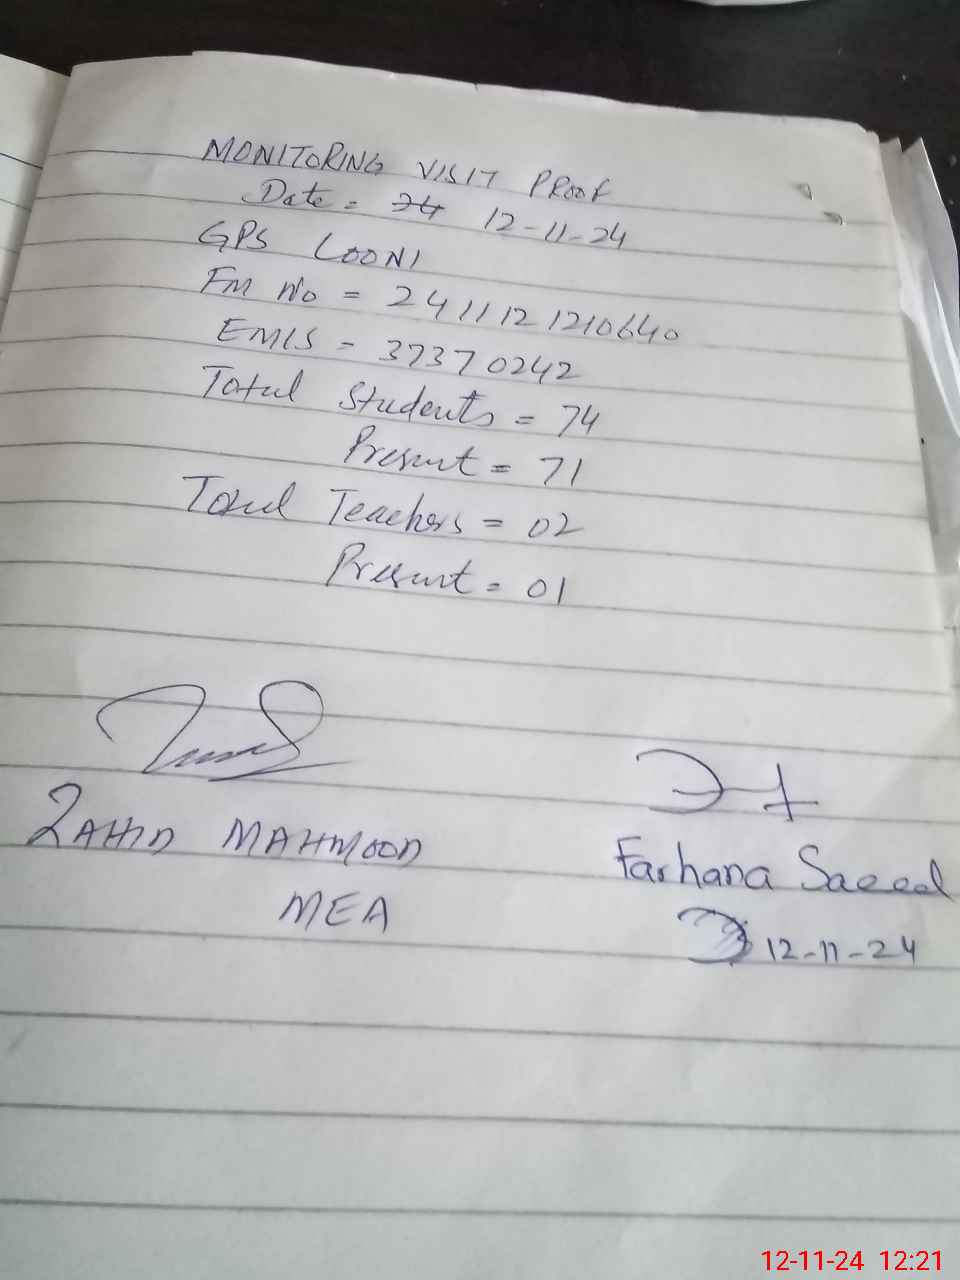 MONITORING VISIT PROOF
Date = 12-11-24
GPS LOONI
Fm No = 2411121210640
EMIS - 37370242
Total Students = 74
Present = 71
Total Teachers = 02
Present = 01
ZAHID MAHMOOD
MEA
Farhana Saeed
12-11-24
12-11-24 12:21